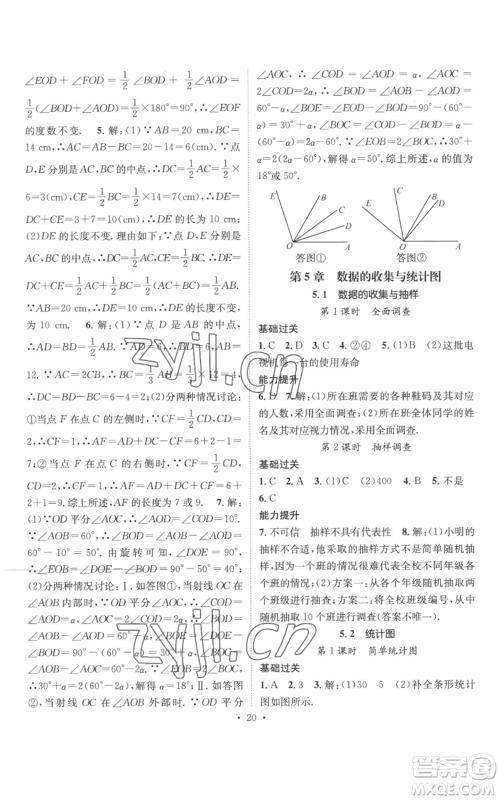 ∠EOD + ∠FOD = 1/2∠BOD + 1/2∠AOD =
1/2(∠BOD+∠AOD)=1/2×180°=90°,∴∠EOF
的度数不变. 5. 解:(1)∵AB=20 cm,BC=
14 cm,∴AC=AB-BC=20-14=6(cm).∵点
D,E分别是AC,BC的中点,∴DC=1/2AC=1/2
×6=3(cm),CE=1/2BC=1/2×14=7(cm),∴DE=
DC+CE=3+7=10(cm);(2)DE的长度不变.
理由如下:∵D,E分别是AC,BC的中点,∴DC
=1/2AC,CE=1/2BC,∴DE=DC+CE=1/2AC+
1/2BC=1/2AB=10 cm,∴DE的长度不变,为
10 cm. 6. 解:(1)∵点D是AB的中点,∴AD=
BD=1/2AB=
12.∵BC=1/3AB,∴BC=1/3AB=1/3×12=4,
∴CD=BD-BC=6-4=2;(2)分两种情况讨论:
①当点F在点C的左侧时,∵CF=1/2CD=1,
∴AF=AD+DC-CF=6+2-1=7;
②当点F在点C的右侧时,∵CF=1/2CD=
1/2×2=1,∴AF=AD+DC+CF=6+
2+1=9.综上所述,AF的长度为7或9. 7. 解:
(1)∵OD平分∠AOC,∴∠AOD=
60°-10°=50°.
由旋转可知,∠DOE=90°,
∴∠BOE=∠DOE-∠BOD=90°-50°=40°;
(2)分两种情况讨论:Ⅰ.如答图①,当射线OC在
∠AOB内部时,∵OD平分∠AOC,∴∠AOC=
2∠AOD=2α,∴∠BOD=∠AOB-∠AOD=
60°-α,
∴30°+α=2(60°-2α),解得α=18°;Ⅱ.如答图
②,当射线OC在∠AOB外部时,∵OD平分
∠AOC,∴∠AOD=∠COD=α,∴∠AOC=
2∠COD=2α,∴∠BOD=∠AOB-∠AOD=
60°-α,∴∠BOE=∠EOD-∠BOD=90°-(60°-
α)=30°+α,∠BOC=∠AOC-∠AOB=2α-
60°.∵∠EOB=2∠BOC,∴30°+α=2(2α-
60°),解得α=50°.综上所述,α的值为
18°或50°.
E B C D O A
E C B D O A
答图① 答图②
第5章 数据的收集与统计图
5.1 数据的收集与抽样
第1课时 全面调查
基础过关
1. C 2. D 3. C 4. ②④ 5. (1)这批电
视机每一台的使用寿命
能力提升
6. D 7. 解:(1)所在班需要的各种鞋码及其对应
的人数,采用全面调查;(2)所在班全体同学的姓
名及其对应的视力情况,采用全面调查.
第2课时 抽样调查
基础过关
1. A 2. A 3. (1)C (2)400 4. B 5. 不是
6. C
能力提升
7. 不可信 抽样不具有代表性 8. 解:(1)小明的
抽样不合适,他采取的抽样方式不是简单随机抽
样,因为他的班级情况很难代表全校不同年级各
个班的情况;(2)方案一:从各个年级随机抽取
两个班级进行调查;方案二:将全校班级编号,从
中随机抽取10个班进行调查(答案不唯一).
5.2 统计图
第1课时 简单统计图
基础过关
1. A 2. A 3. 解:(1)30 5 (2)补全条形统计
图如图所示.
· 20 ·
zyjl.cn
zyjl.cn
答案圈
MXQE.COM